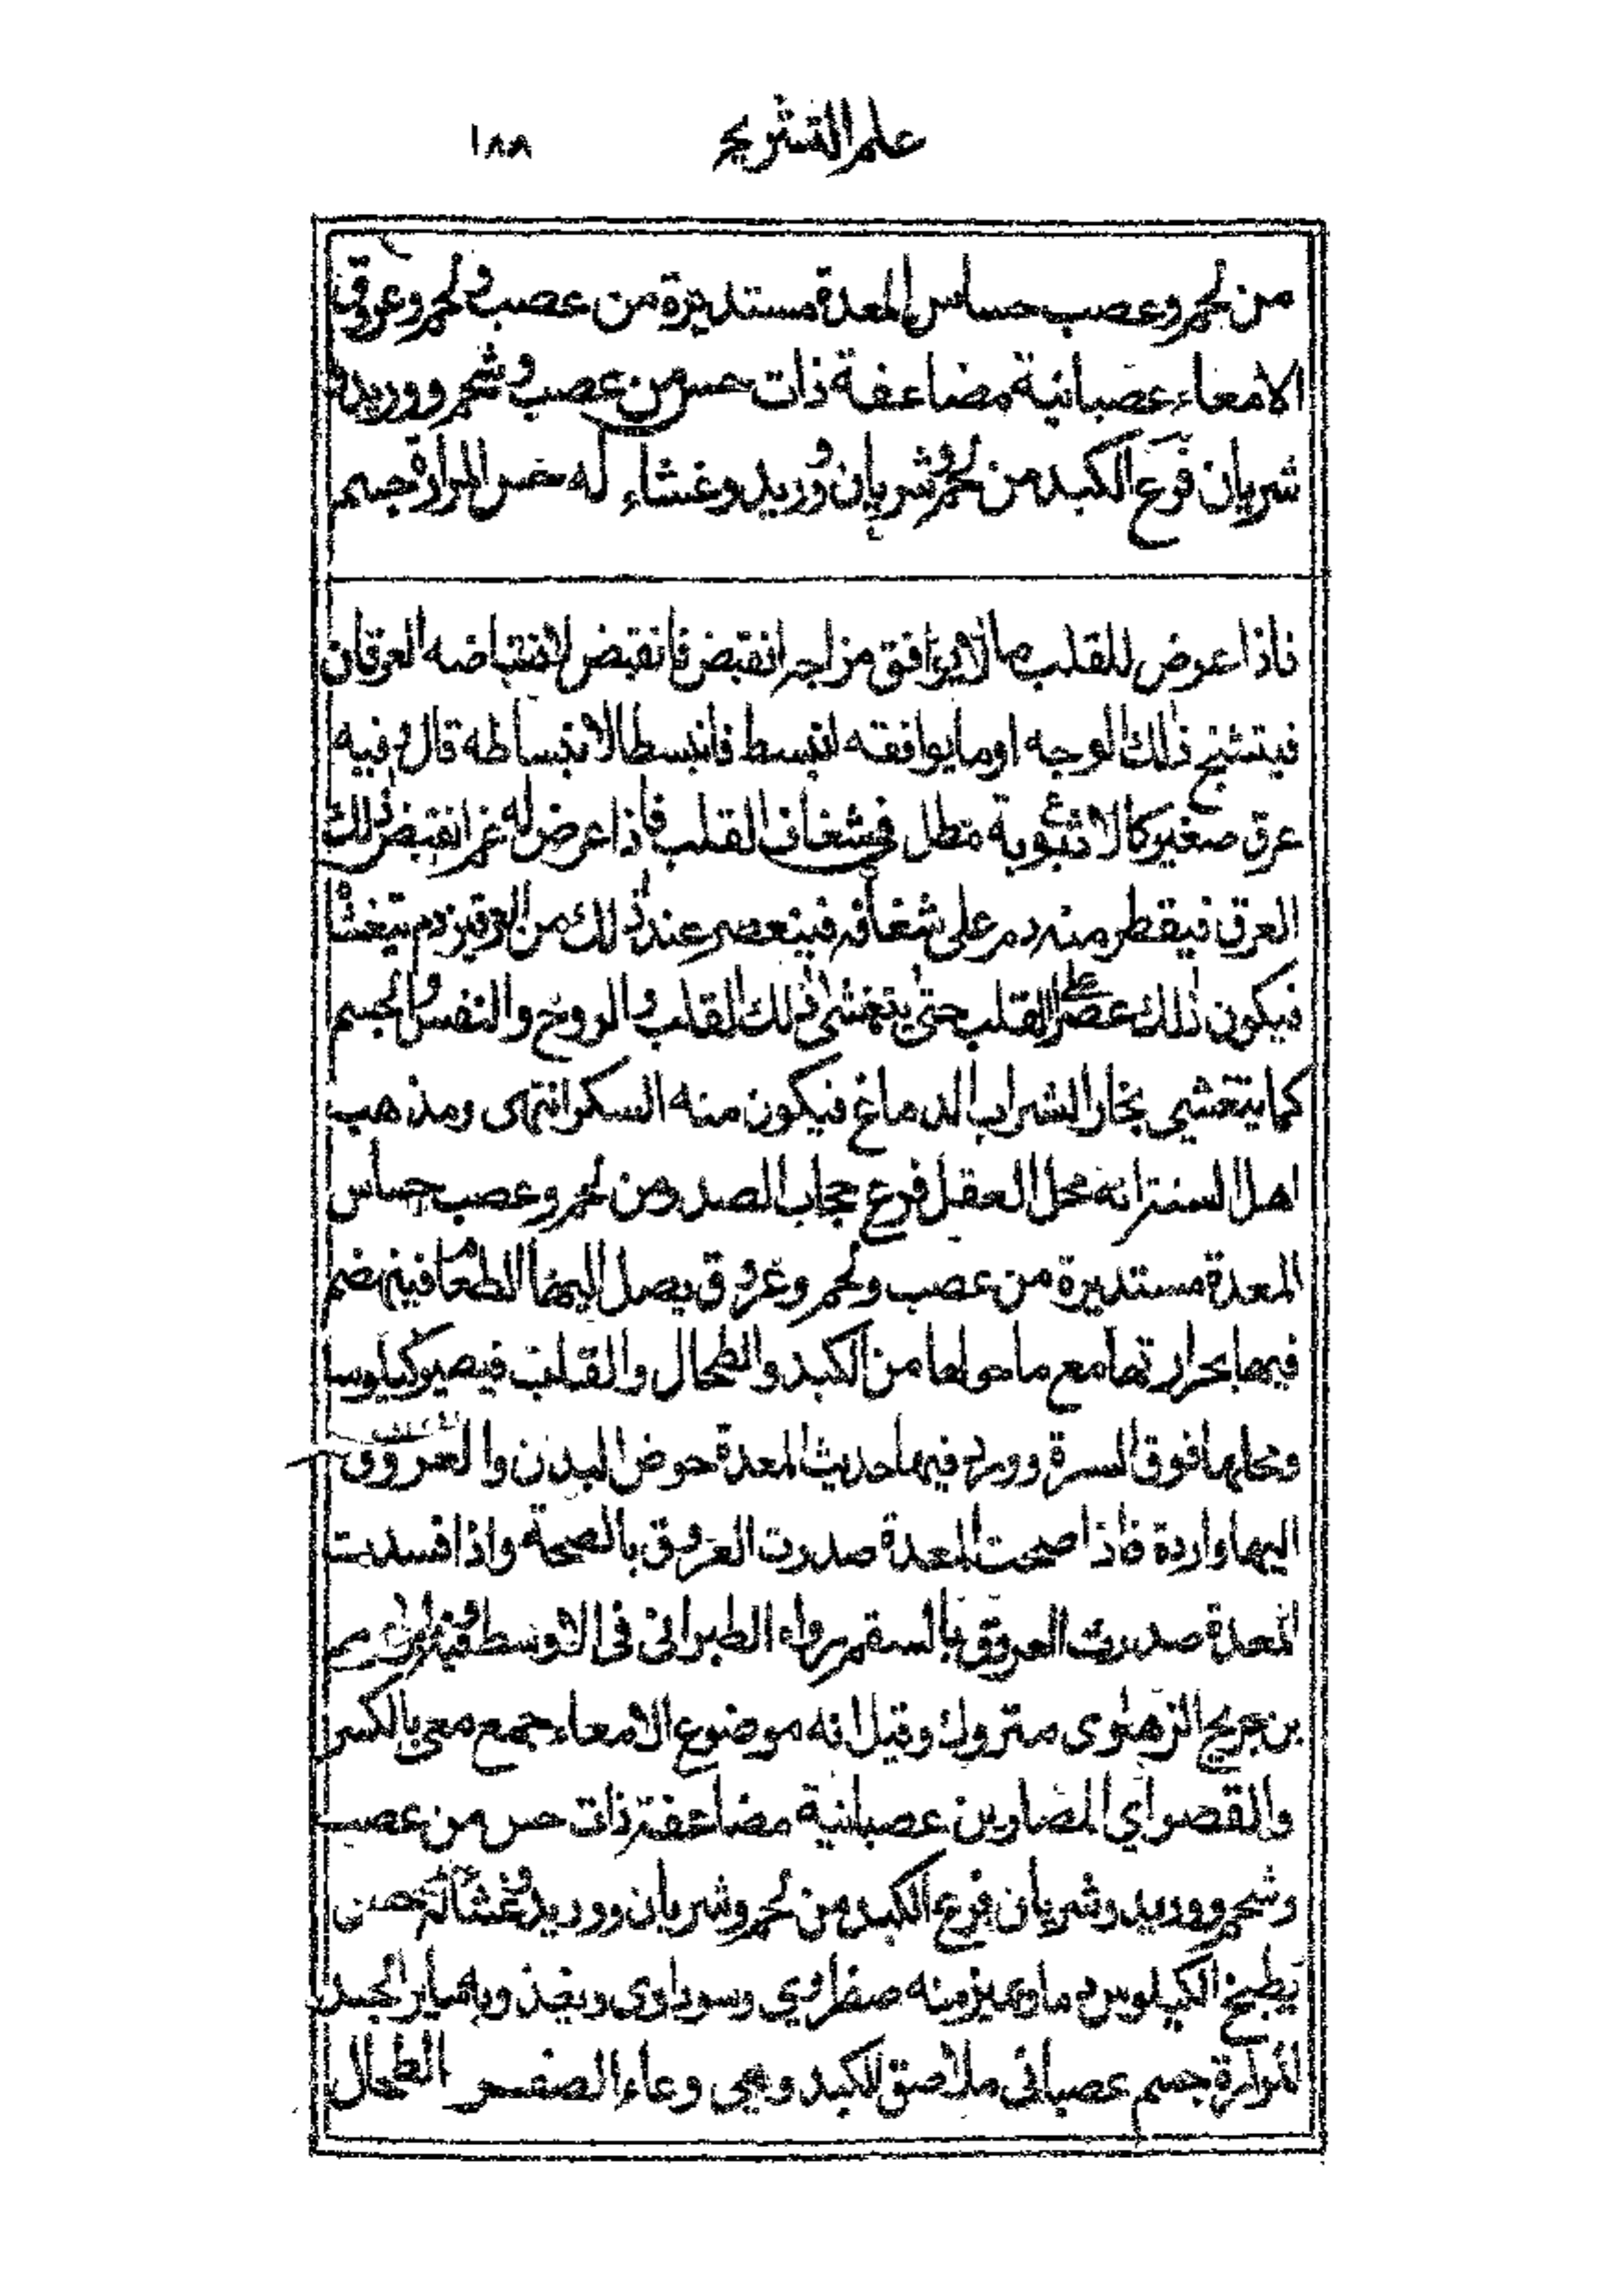 علم التشريح ١٨٨
من لحم وعصب حساس المعدة مستديرة من عصب و لحم وعروق
الامعاء عصبانية مضاعفة ذات حس من عصب وشحم ووريد و
شريان فرع الكبد من لحم وشريان ووريد وغشاء له حس المرارة جسم
فاذا عرض للقلب ما لا يوافق مزاجه انقبض فانقبض لانقباضه العرقان
فيتشنج ذلك الوجه او ما يوافقه انبسط فانبسطا لانبساطه قال وفيه
عرق صغير كالانبوبة مطل في شغاف القلب فاذا عرض له غم انقبض ذلك
العرق فيقطر منه دم على شغافه فينعصر عند ذلك من العرقين دم يتغشا
فيكون ذلك عصرا القلب حتى يتغشى ذلك القلب والروح والنفس والجسم
كما يتغشى بخار الشراب الدماغ فيكون منه السكر انتهى ومذهب
اهل السنة انه محل العقل فرع حجاب الصدر من لحم وعصب حساس
المعدة مستديرة من عصب ولحم وعروق يصل اليها الطعام فينهضم
فيها بحرارتها مع ما حولها من الكبد والطحال والقلب فيصير كيلوسا
ومحلها فوق السرة وورد فيها حديث المعدة حوض البدن والعروق
اليها واردة فاذا صحت المعدة صدرت العروق بالصحة واذا فسدت
المعدة صدرت العروق بالسقم رواه الطبرانى فى الاوسط وفيه ابراهيم
بن جريج الرهاوى متروك وقيل انه موضوع الامعاء جمع معى بالكسر
والقصر اي المصارين عصبانية مضاعفة ذات حس من عصب
وشحم ووريد وشريان فرع الكبد من لحم وشريان ووريد وغشاء له حس
يطبخ الكيلوس دما ويميز منه صفراوي وسوداوى وينفذ وبا سائر الجسد
المرارة جسم عصبانى ملاصق للكبد وهى وعاء الصفر الطحال